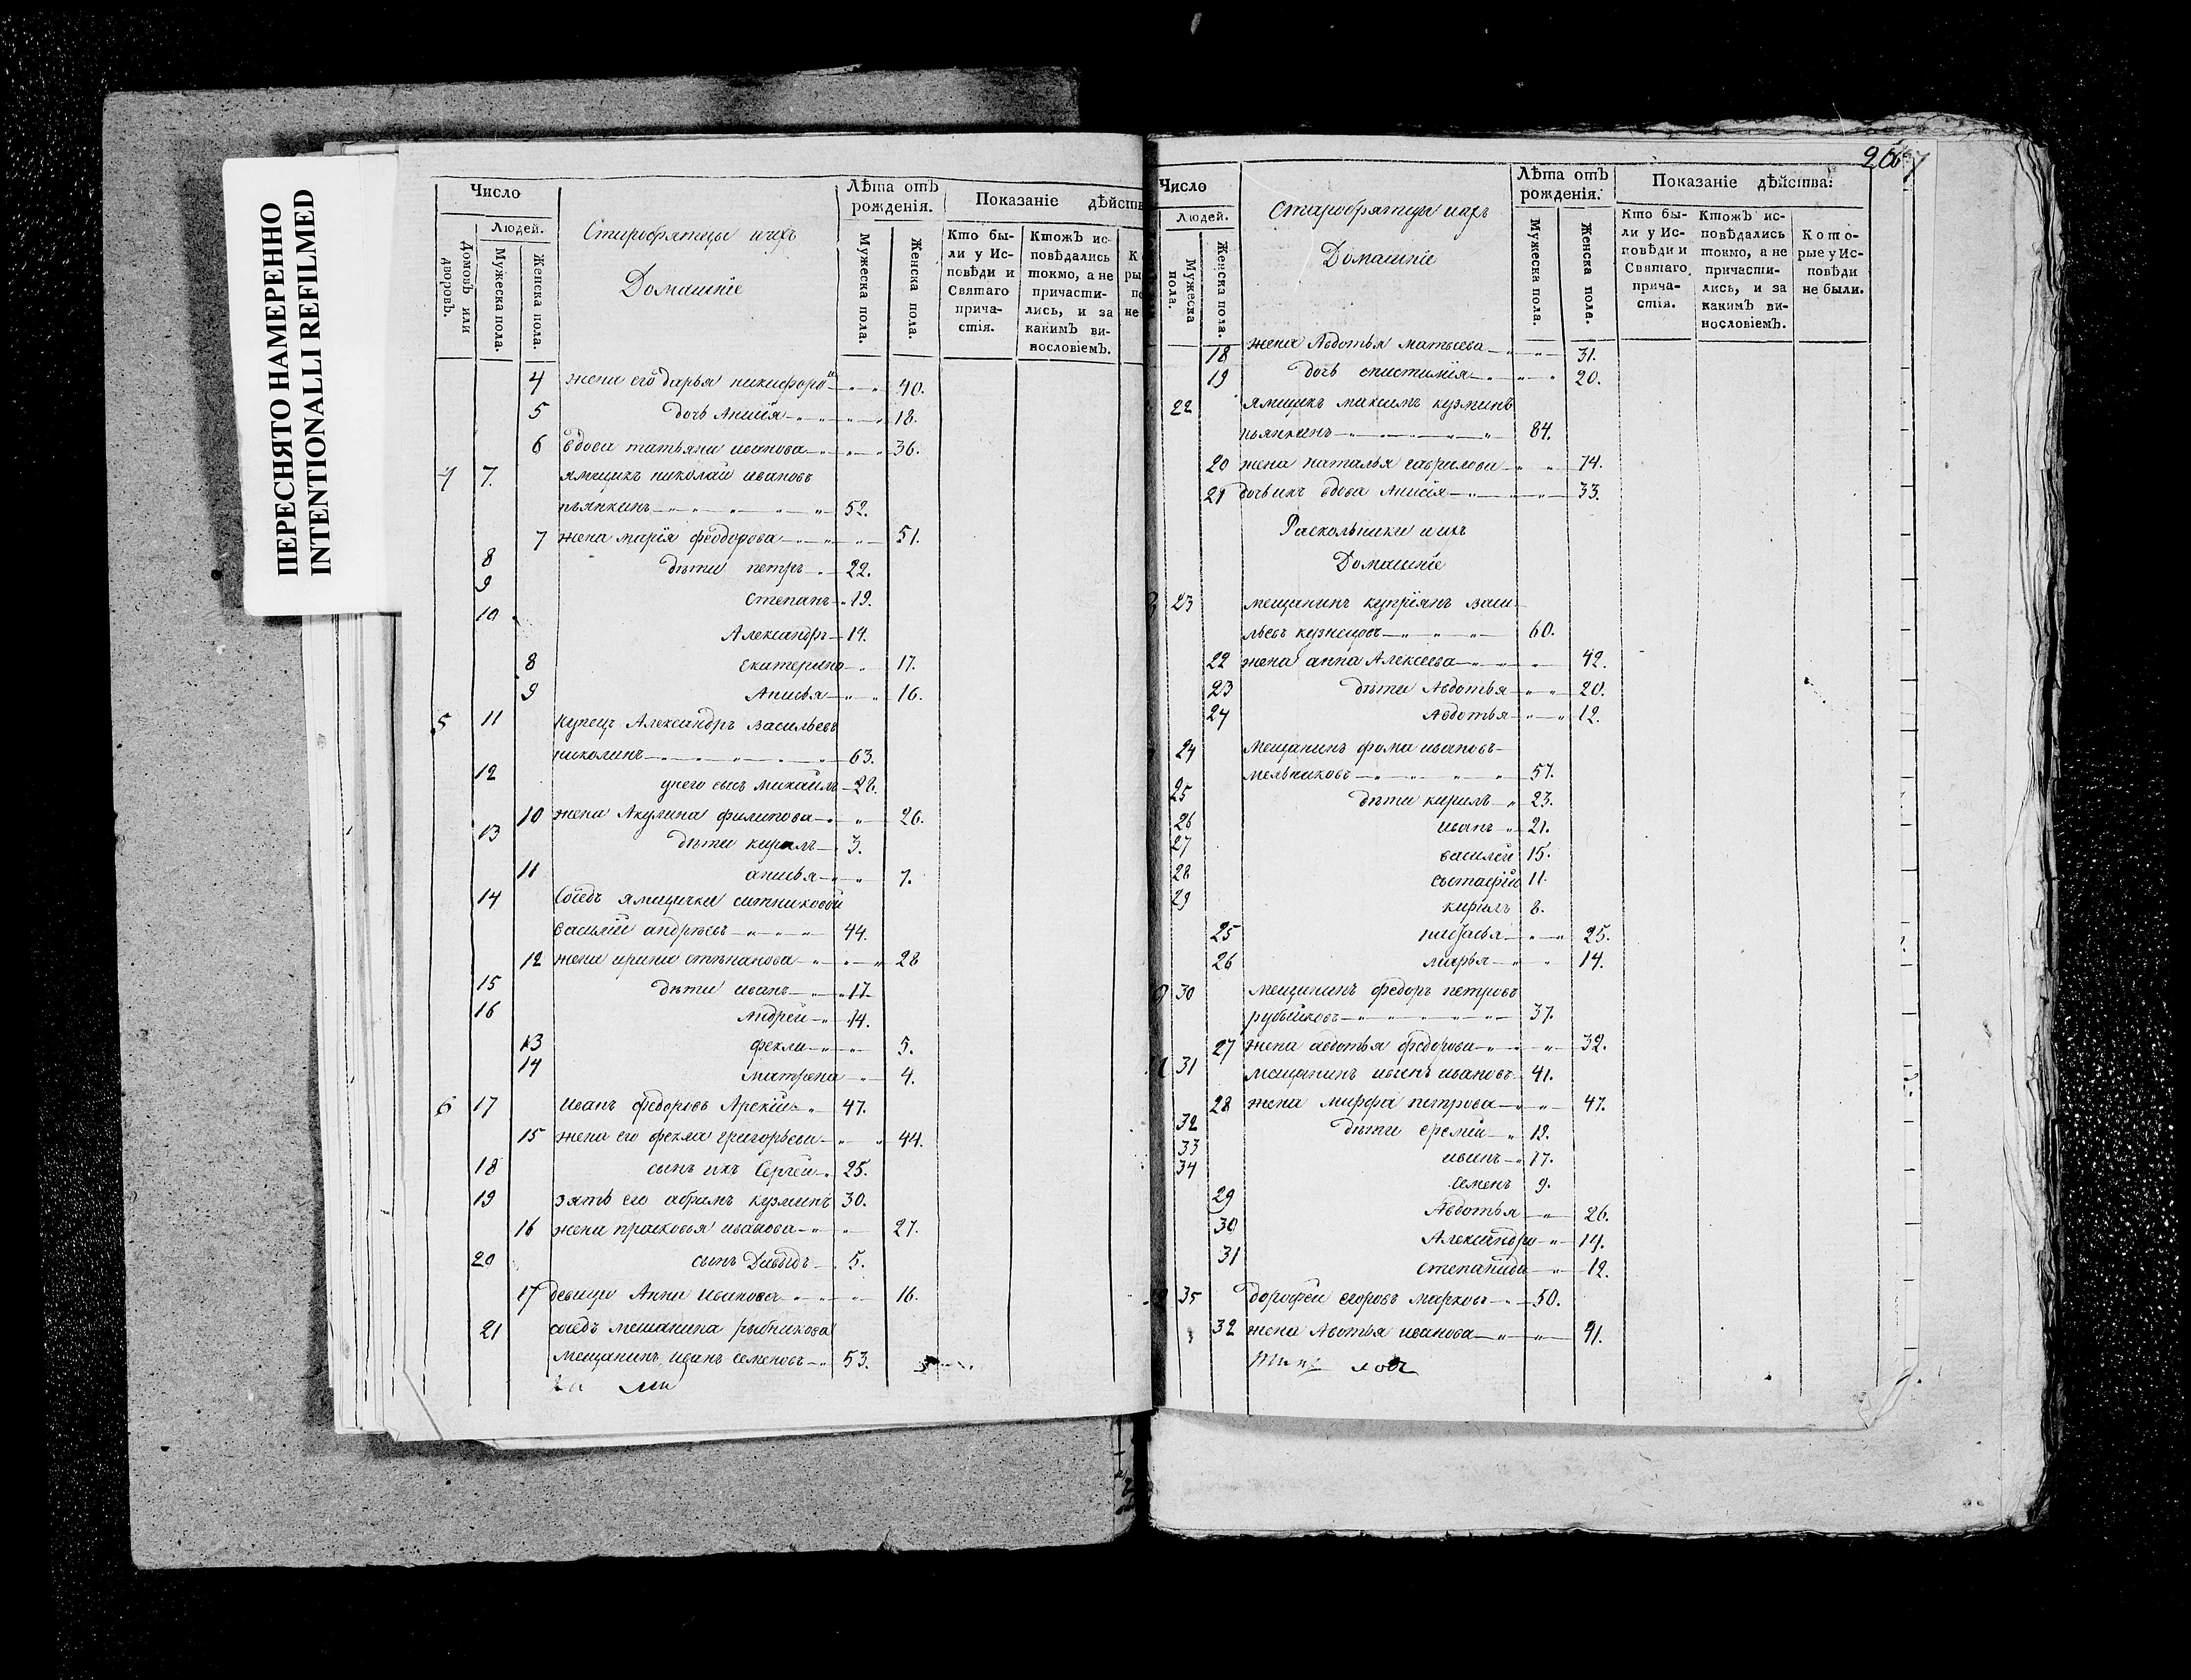 ПЕРЕСНЯТО НАМЕРЕННО
INTENTIONALLI REFILMED
Число
Людей.
Домовъ или дворовъ.
Мужеска пола.
Женска пола.
Старобрятцы и ихъ
Домашніе
Лѣта отъ рожденія.
Мужеска пола.
Женска пола.
Показаніе дѣйств
Кто бы-
ли у Ис-
повѣди и
Святаго
прича-
стія.
Ктожъ ис-
повѣдались
токмо, а не
причасти-
лись, и за
какимъ ви-
нословіемъ.
4 жена его дарья никифоро 40.
5 дочь Анисія 18.
6 вдова татьяна иванова 36.
4 7. ямщикъ николай ивановъ
пьянкинъ 52.
7 жена марія феодорова 51.
8 дѣти петръ 22.
9 степанъ 19.
10 Александръ 14.
8 екатерина 17.
9 Анисья 16.
5 11 купецъ Александръ васильевъ
николинъ 63.
12 у него сынъ михаилъ 28.
10 жена Акулина филипова 26.
13 дѣти кирилъ 3.
11 анисья 7.
14 Сосѣдъ ямщички ситниковой
василій андрѣевъ 44.
12 жена ирина степанова 28
15 дѣти иванъ 17
16 Андрей 14.
13 фекла 5.
14 матрена 4.
6 17 иванъ федоровъ 47.
15 жена его фекла григорьева 44.
18 сынъ ихъ Сергей 25.
19 зять его абрамъ кузминъ 30.
16 жена прасковья иванова 27.
20 сынъ Давыдъ 5.
17 девица Анна иванова 16.
21 сосѣдъ мещанина рыбникова
мещанинъ иванъ семеновъ 53.
267
Число
Людей.
Мужеска пола.
Женска пола.
Старобрятцы и ихъ
Домашніе
Лѣта отъ рожденія.
Мужеска пола.
Женска пола.
Показаніе дѣйства:
Кто бы-
ли у Ис-
повѣди и
Святаго
прича-
стія.
Ктожъ ис-
повѣдались
токмо, а не
причасти-
лись, и за
какимъ ви-
нословіемъ.
Кото-
рые у Ис-
повѣди
не были.
18 жена Авдотья матвѣева 31.
19 дочь 20.
22 ямщикъ максимъ кузминъ
пьянкинъ 84.
20 жена наталья гаврилова 74.
21 дочь ихъ вдова Анисія 33.
Раскольники и ихъ
Домашніе
23 мещанинъ купріянъ васи
льевъ кузнецовъ 60.
22 жена анна Алексеева 42.
23 дѣти Авдотья 20.
24 Авдотья 12.
24 мещанинъ фома ивановъ
мельниковъ 57.
25 дѣти кирилъ 23.
26 иванъ 21.
27 василей 15.
28 11.
29 кирилъ 8.
25 25.
26 марья 14.
30 мещанинъ федоръ петровъ
37.
27 жена авдотья федорова 32.
31 мещанинъ иванъ ивановъ 41.
28 жена марфа петрова 47.
32 дѣти еремей 19.
33 иванъ 17.
34 семенъ 9.
29 Авдотья 26.
30 Александра 14.
31 степанида 12.
35 дорофей егоровъ марковъ 50.
32 жена Авотья иванова 41.